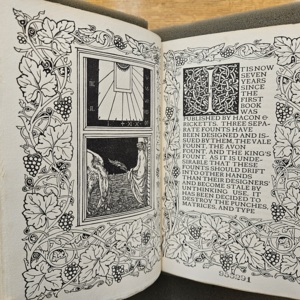 IT IS NOW
SEVEN
YEARS
SINCE
THE
FIRST
BOOK
WAS
PUBLISHED BY HACON &
RICKETTS. THREE SEPA-
RATE FOUNTS HAVE
BEEN DESIGNED AND IS-
SUED BY THEM, THE VALE
FOUNT, THE AVON
FOUNT, AND THE KING'S
FOUNT. AS IT IS UNDE-
SIRABLE THAT THESE
FOUNTS SHOULD DRIFT
INTO OTHER HANDS
THAN THEIR DESIGNERS'
AND BECOME STALE BY
UNTHINKING USE, IT
HAS BEEN DECIDED TO
DESTROY THE PUNCHES,
MATRICES, AND TYPE